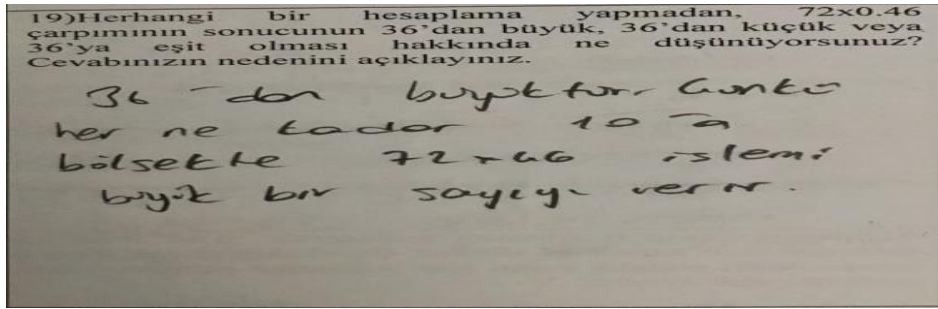 19)Herhangi bir hesaplama yapmadan, 72x0.46
çarpımının sonucunun 36'dan büyük, 36'dan küçük veya
36'ya eşit olması hakkında ne düşünüyorsunuz?
Cevabınızın nedenini açıklayınız.
36 -dan büyüktür. Çünkü
her ne kadar 10 a
bölsekte 72x46 işlemi
büyük bir sayıyı verir.